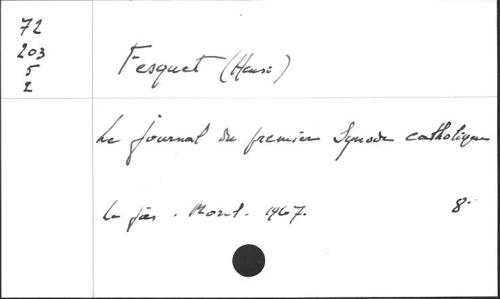 72
203
5
2
Fesquet (Henri)
Le journal du premier Synode catholique
Le jas. Morel. 1967. 8°